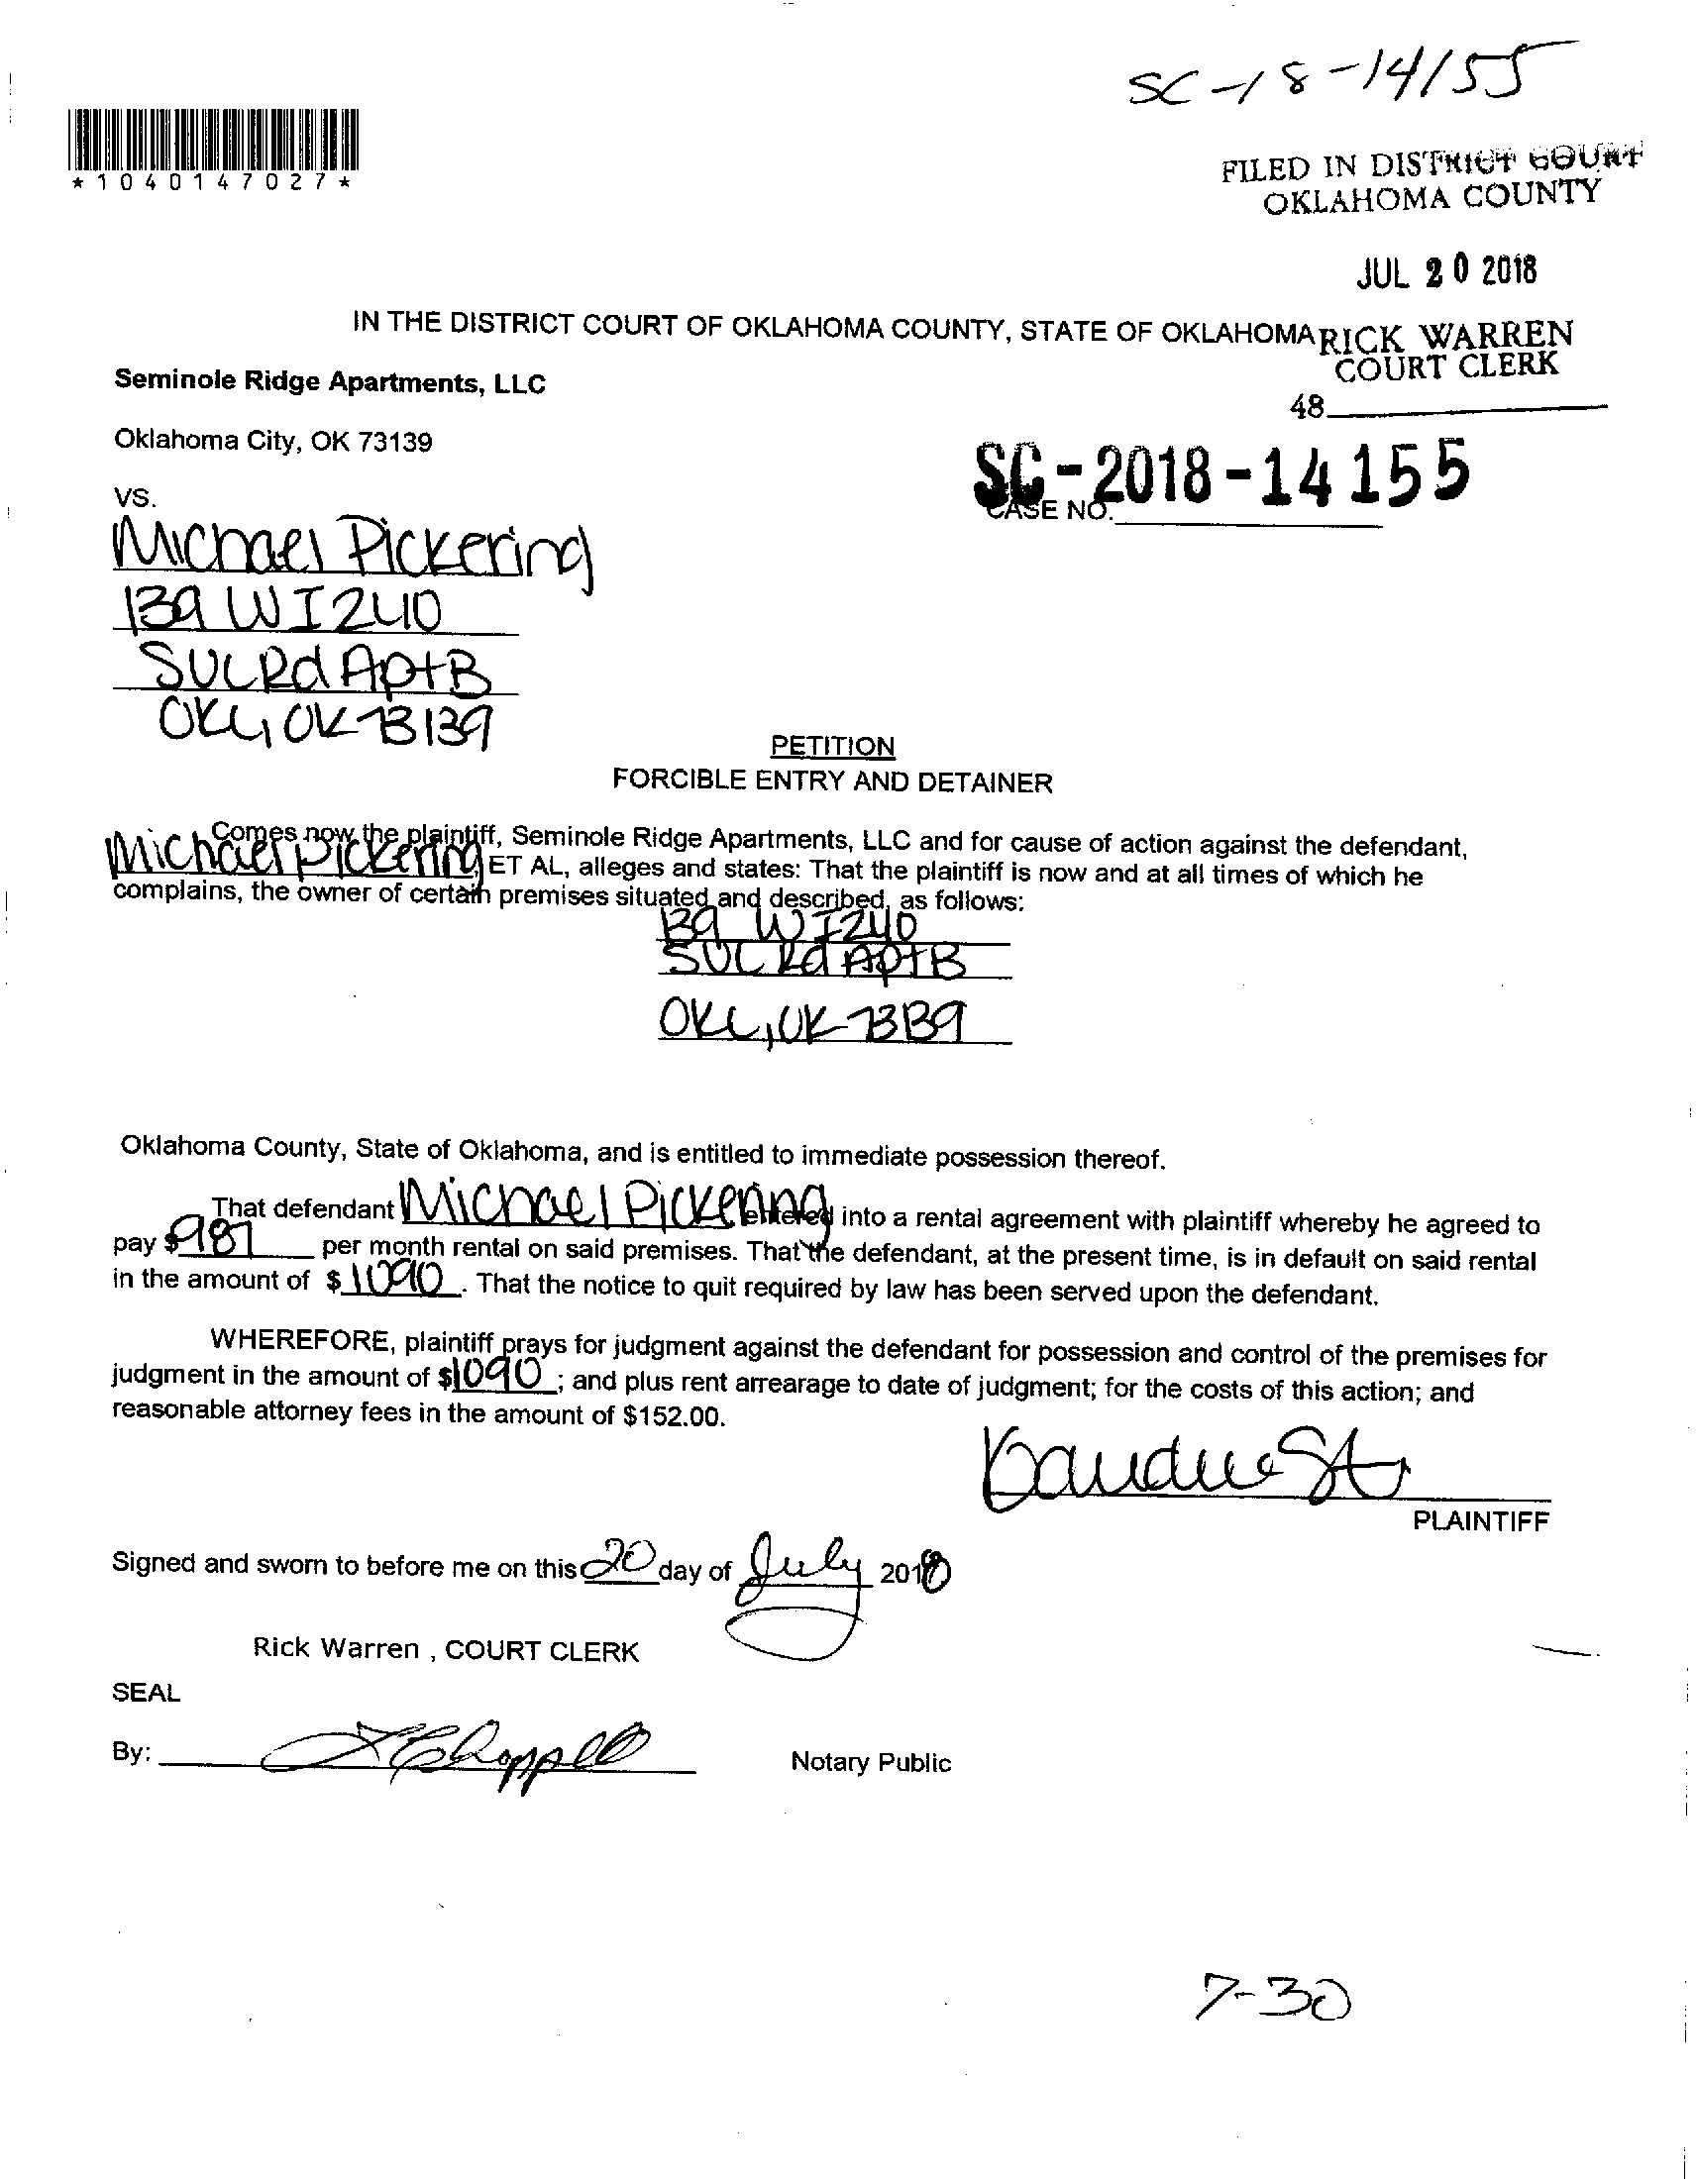 SC-18-14155
*1040147027*
FILED IN DISTRICT COURT
OKLAHOMA COUNTY
JUL 20 2018
IN THE DISTRICT COURT OF OKLAHOMA COUNTY, STATE OF OKLAHOMA
RICK WARREN
COURT CLERK
Seminole Ridge Apartments, LLC
48
Oklahoma City, OK 73139
SC-2018-14155
VS.
CASE NO.
Michael Pickering
139 W I 240
SVC Rd Apt B
OKC, OK 73139
PETITION
FORCIBLE ENTRY AND DETAINER
Comes now the plaintiff, Seminole Ridge Apartments, LLC and for cause of action against the defendant,
Michael Pickering ET AL, alleges and states: That the plaintiff is now and at all times of which he
complains, the owner of certain premises situated and described, as follows:
139 W I 240
SVC Rd Apt B
OKC, OK 73139
Oklahoma County, State of Oklahoma, and is entitled to immediate possession thereof.
That defendant Michael Pickering entered into a rental agreement with plaintiff whereby he agreed to
pay $987 per month rental on said premises. That the defendant, at the present time, is in default on said rental
in the amount of $1090. That the notice to quit required by law has been served upon the defendant.
WHEREFORE, plaintiff prays for judgment against the defendant for possession and control of the premises for
judgment in the amount of $1090; and plus rent arrearage to date of judgment; for the costs of this action; and
reasonable attorney fees in the amount of $152.00.
PLAINTIFF
Signed and sworn to before me on this 20 day of July 2018
Rick Warren , COURT CLERK
SEAL
By:
Notary Public
7-30